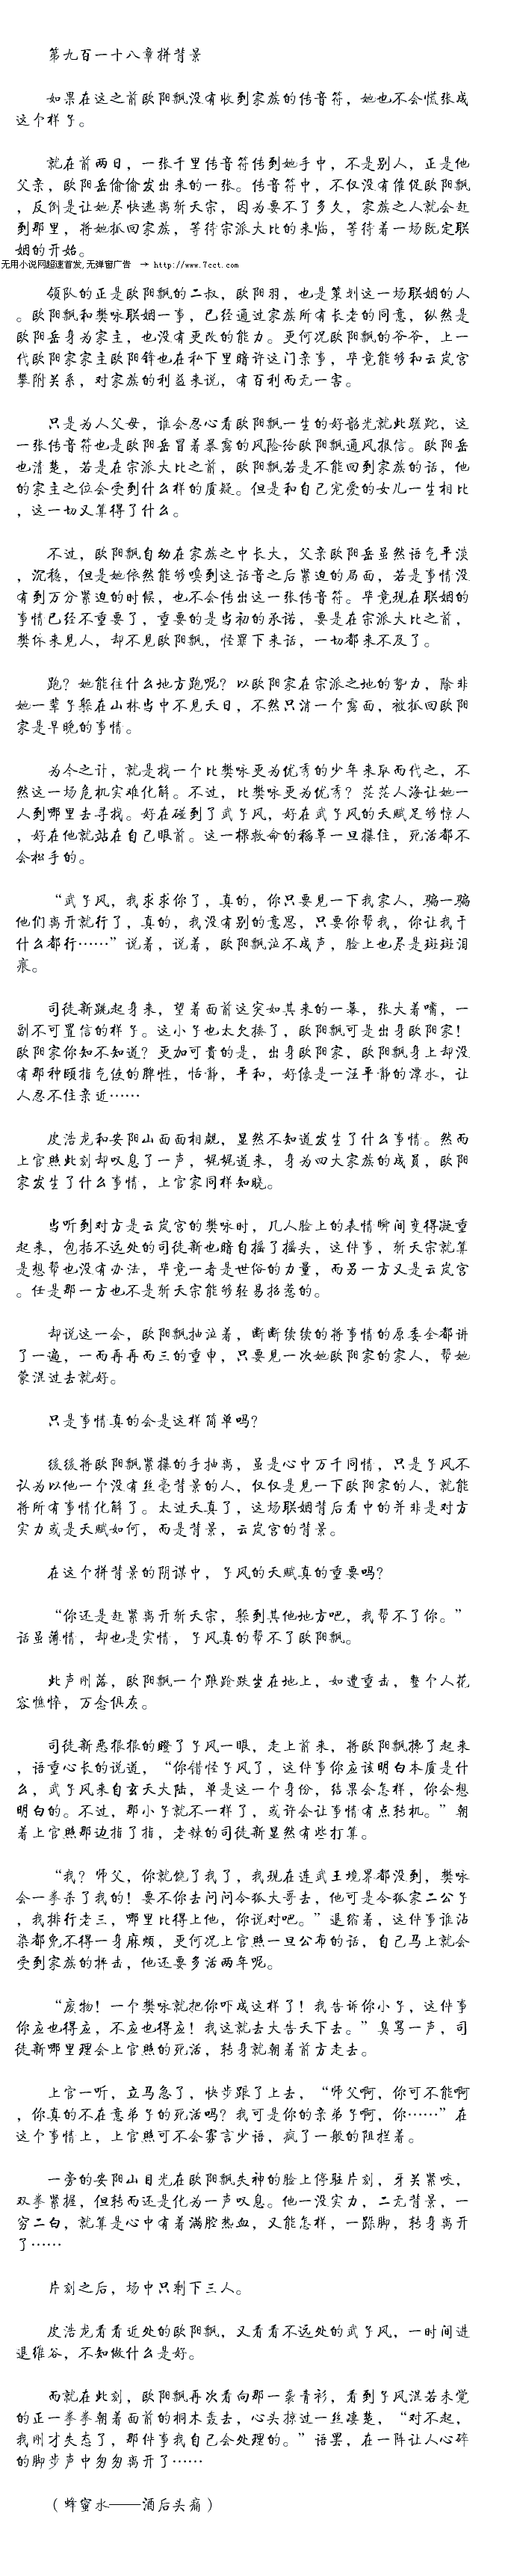 第九百一十八章拼背景
如果在这之前欧阳飘没有收到家族的传音符，她也不会慌张成
这个样子。
就在前两日，一张千里传音符传到她手中，不是别人，正是他
父亲，欧阳岳偷偷发出来的一张。传音符中，不仅没有催促欧阳飘
，反倒是让她尽快逃离斩天宗，因为要不了多久，家族之人就会赶
到那里，将她抓回家族，等待宗派大比的来临，等待着一场既定联
姻的开始。
无用小说网超速首发,无弹窗广告 → http://www.7cct.com
领队的正是欧阳飘的二叔，欧阳羽，也是策划这一场联姻的人
。欧阳飘和樊咏联姻一事，已经通过家族所有长老的同意，纵然是
欧阳岳身为家主，也没有更改的能力。更何况欧阳飘的爷爷，上一
代欧阳家家主欧阳锋也在私下里暗许这门亲事，毕竟能够和云岚宫
攀附关系，对家族的利益来说，有百利而无一害。
只是为人父母，谁会忍心看欧阳飘一生的好韶光就此蹉跎，这
一张传音符也是欧阳岳冒着暴露的风险给欧阳飘通风报信。欧阳岳
也清楚，若是在宗派大比之前，欧阳飘若是不能回到家族的话，他
的家主之位会受到什么样的质疑。但是和自己宠爱的女儿一生相比
，这一切又算得了什么。
不过，欧阳飘自幼在家族之中长大，父亲欧阳岳虽然语气平淡
，沉稳，但是她依然能够嗅到这话音之后紧迫的局面，若是事情没
有到万分紧迫的时候，也不会传出这一张传音符。毕竟现在联姻的
事情已经不重要了，重要的是当初的承诺，要是在宗派大比之前，
樊咏来见人，却不见欧阳飘，怪罪下来话，一切都来不及了。
跑？她能往什么地方跑呢？以欧阳家在宗派之地的势力，除非
她一辈子躲在山林当中不见天日，不然只消一个露面，被抓回欧阳
家是早晚的事情。
为今之计，就是找一个比樊咏更为优秀的少年来取而代之，不
然这一场危机实难化解。不过，比樊咏更为优秀？茫茫人海让她一
人到哪里去寻找。好在碰到了武子风，好在武子风的天赋足够惊人
，好在他就站在自己眼前。这一棵救命的稻草一旦揪住，死活都不
会松手的。
“武子风，我求求你了，真的，你只要见一下我家人，骗一骗
他们离开就行了，真的，我没有别的意思，只要你帮我，你让我干
什么都行……”说着，说着，欧阳飘泣不成声，脸上也尽是斑斑泪
痕。
司徒新跳起身来，望着面前这突如其来的一幕，张大着嘴，一
副不可置信的样子。这小子也太欠揍了，欧阳飘可是出身欧阳家！
欧阳家你知不知道？更加可贵的是，出身欧阳家，欧阳飘身上却没
有那种颐指气使的脾性，恬静，平和，好像是一汪平静的潭水，让
人忍不住亲近……
皮浩龙和安阳山面面相觑，显然不知道发生了什么事情。然而
上官照此刻却叹息了一声，娓娓道来，身为四大家族的成员，欧阳
家发生了什么事情，上官家同样知晓。
当听到对方是云岚宫的樊咏时，几人脸上的表情瞬间变得凝重
起来，包括不远处的司徒新也暗自摇了摇头，这件事，斩天宗就算
是想帮也没有办法，毕竟一者是世俗的力量，而另一方又是云岚宫
。任是那一方也不是斩天宗能够轻易招惹的。
却说这一会，欧阳飘抽泣着，断断续续的将事情的原委全都讲
了一遍，一而再再而三的重申，只要见一次她欧阳家的家人，帮她
蒙混过去就好。
只是事情真的会是这样简单吗？
缓缓将欧阳飘紧揪的手抽离，虽是心中万千同情，只是子风不
认为以他一个没有丝毫背景的人，仅仅是见一下欧阳家的人，就能
将所有事情化解了。太过天真了，这场联姻背后看中的并非是对方
实力或是天赋如何，而是背景，云岚宫的背景。
在这个拼背景的阴谋中，子风的天赋真的重要吗？
“你还是赶紧离开斩天宗，躲到其他地方吧，我帮不了你。”
话虽薄情，却也是实情，子风真的帮不了欧阳飘。
此声刚落，欧阳飘一个踉跄跌坐在地上，如遭重击，整个人花
容憔悴，万念俱灰。
司徒新恶狠狠的瞪了子风一眼，走上前来，将欧阳飘搀了起来
，语重心长的说道，“你错怪子风了，这件事你应该明白本质是什
么，武子风来自玄天大陆，单是这一个身份，结果会怎样，你会想
明白的。不过，那小子就不一样了，或许会让事情有点转机。”朝
着上官照那边指了指，老辣的司徒新显然有些打算。
“我？师父，你就饶了我了，我现在连武王境界都没到，樊咏
会一拳杀了我的！要不你去问问令狐大哥去，他可是令狐家二公子
，我排行老三，哪里比得上他，你说对吧。”退缩着，这件事谁沾
染都免不得一身麻烦，更何况上官照一旦公布的话，自己马上就会
受到家族的抨击，他还要多活两年呢。
“废物！一个樊咏就把你吓成这样了！我告诉你小子，这件事
你应也得应，不应也得应！我这就去大告天下去。”臭骂一声，司
徒新哪里理会上官照的死活，转身就朝着前方走去。
上官一听，立马急了，快步跟了上去，“师父啊，你可不能啊
，你真的不在意弟子的死活吗？我可是你的亲弟子啊，你……”在
这个事情上，上官照可不会寡言少语，疯了一般的阻拦着。
一旁的安阳山目光在欧阳飘失神的脸上停驻片刻，牙关紧咬，
双拳紧握，但转而还是化为一声叹息。他一没实力，二无背景，一
穷二白，就算是心中有着满腔热血，又能怎样，一跺脚，转身离开
了……
片刻之后，场中只剩下三人。
皮浩龙看看近处的欧阳飘，又看看不远处的武子风，一时间进
退维谷，不知做什么是好。
而就在此刻，欧阳飘再次看向那一袭青衫，看到子风混若未觉
的正一拳拳朝着面前的桐木轰去，心头掠过一丝凄楚，“对不起，
我刚才失态了，那件事我自己会处理的。”语罢，在一阵让人心碎
的脚步声中匆匆离开了……
（蜂蜜水——酒后头痛）